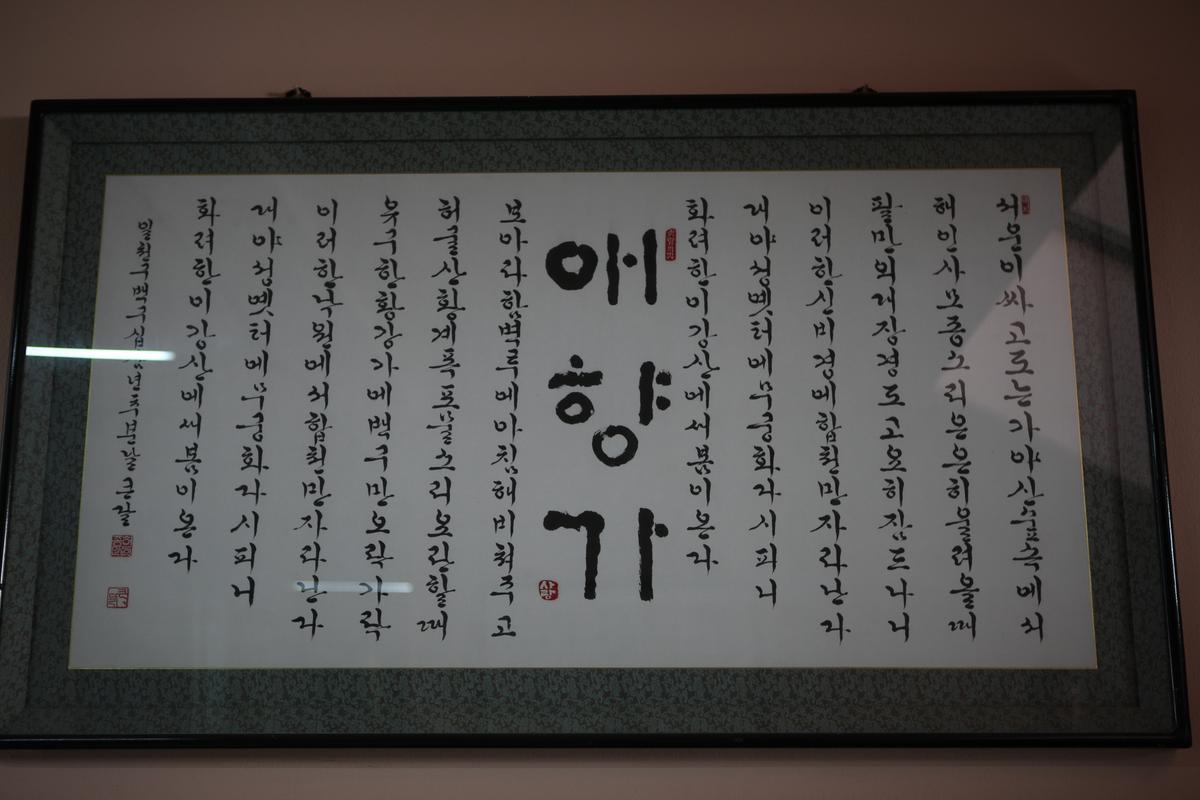 서운이싸고도는가야산숲속에서
해인사모종소리은은히울려올때
팔만의대장경도고요히잠드나니
이러한신비경에합천민자라난다
대야성옛터에무궁화다시피니
화려한이강산에서봄이온다
애향가
보아라함벽루에아침해비최주고
허굴산황계폭포물소리요란할때
유구한황강가에백구만오락가락
이러한낙원에서합천민자라난다
대야성옛터에무궁화다시피니
화려한이강산에서봄이온다
일천구백구십